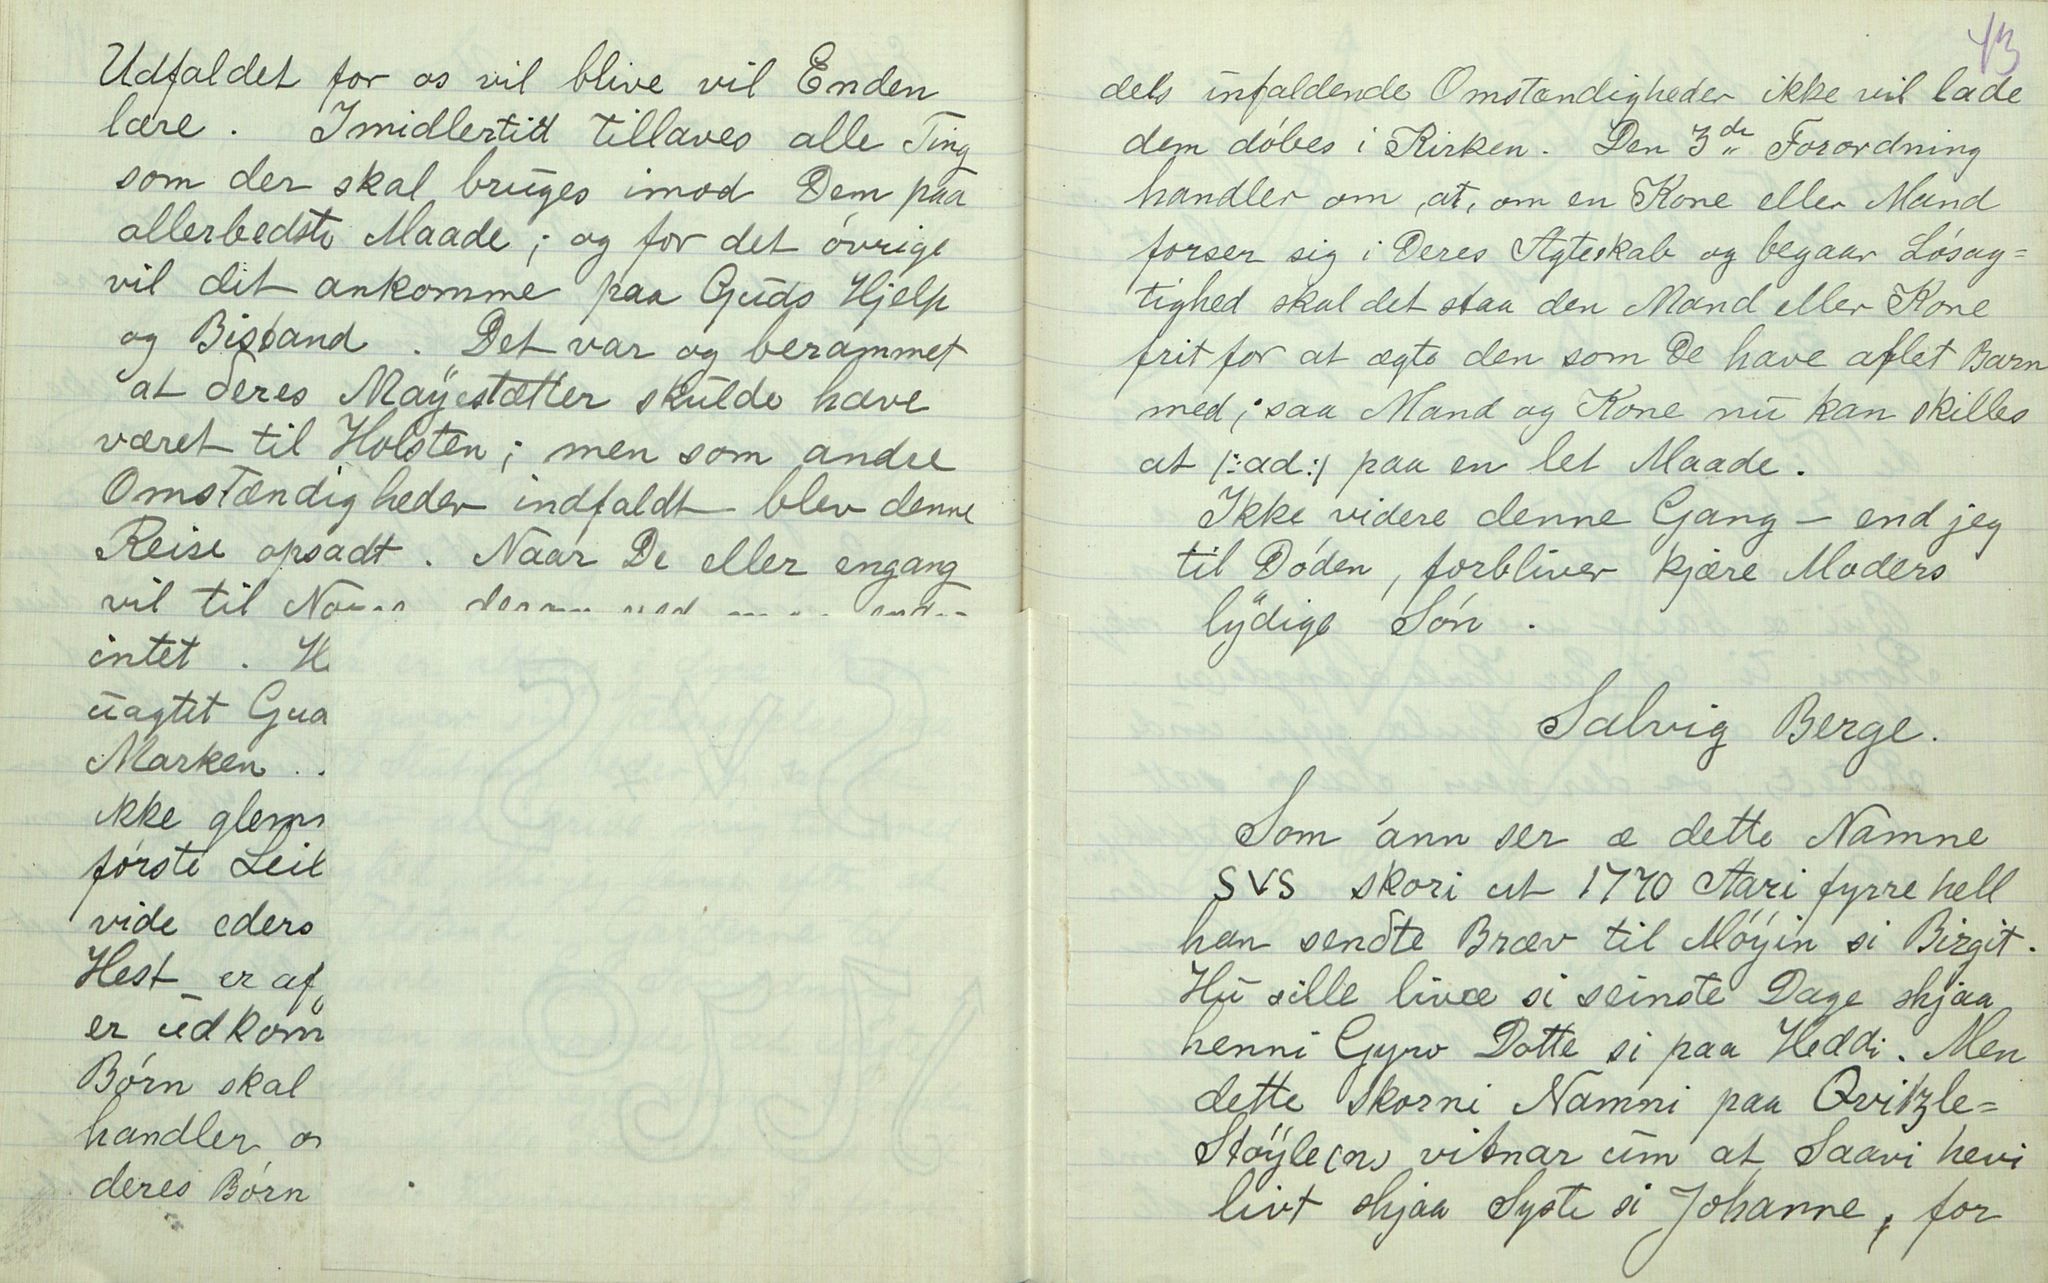 Udfaldet for os vil blive vil Enden
lære. Imidlertid tillaves alle Ting
som der skal bruges imod Dem paa
allerbedste Maade; og for det óvrige
vil dit ankomme paa Guds Hjelp
og Bistand. Det var og berammet
at deres Mayestætter skulde have
været til Holsten; men som andre
Omstændigheder indfaldt blev denne
Reise opsadt. Naar De eller engang
vil til
intet. H
uagtet Gua
Marken.
ikke glem
fórste Leil
vide eders
Hest er af
er udkom
Bórn skal
handler o
deres Bórn
43
dels infaldende Omstændigheder ikke vil lade
dem dóbes i Kirken. Den 3de Forordning
handler om, at, om en Kone eller Mand
forser sig i Deres Ægteskab og begaar Lósag=
tighed skal det staa den Mand eller Kone
frit for at ægte den som De have aflet Barn
med; saa Mand og Kone nu kan skilles
at /:ad:/ paa en let Maade.
Ikke videre denne Gang - end jeg
til Dóden, forbliver kjære Moders
lydige Són.
Salvig Berge.
Som ánn ser æ dette Namne
SVS skori ut 1770 Aari fyrre hell
han sendte Bræv til Móyin si Birgit.
Hu sille livæ si seinste Dage shjaa
henni Gyro Dotte si paa Heddi. Men
dette skorni Namni paa Qvitzle=
Stöyle(n) vitnar um at Saavi hevi
livt shjaa Syste si Johanne, for